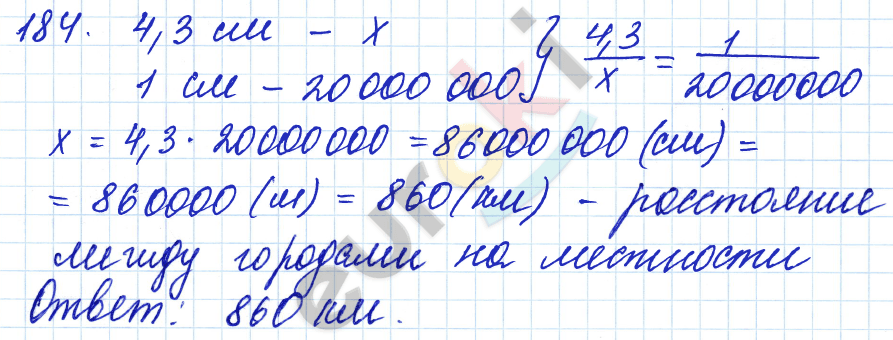 184. 4,3 см – x } 4,3/x = 1/20000000
1 см – 20 000 000
x = 4,3 · 20000000 = 86000 000 (см) =
= 860000 (м) = 860 (км) – расстояние
между городами на местности
Ответ: 860 км.
euroki